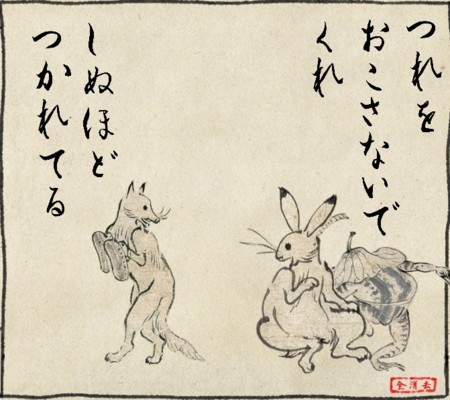 つれを
おこさないで
くれ
しぬほど
つかれてる
全消去